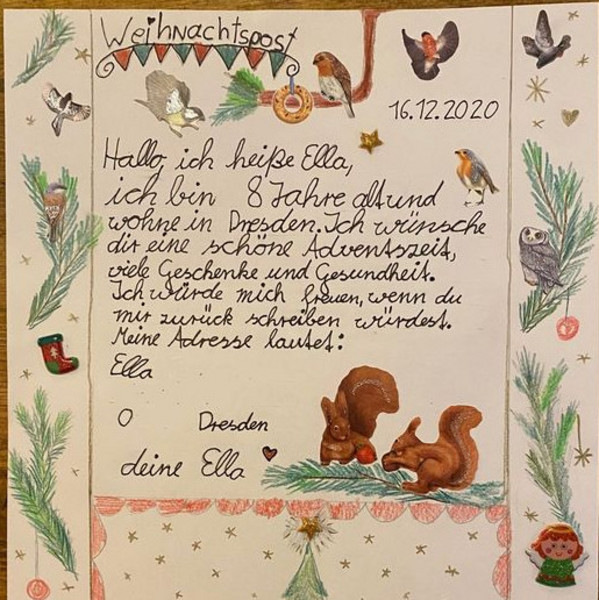 Weihnachtspost
16.12.2020
Hallo, ich heiße Ella,
ich bin 8 Jahre alt und
wohne in Dresden. Ich wünsche
dir eine schöne Adventszeit,
viele Geschenke und Gesundheit.
Ich würde mich freuen, wenn du
mir zurück schreiben würdest.
Meine Adresse lautet:
Ella
0 Dresden
deine Ella